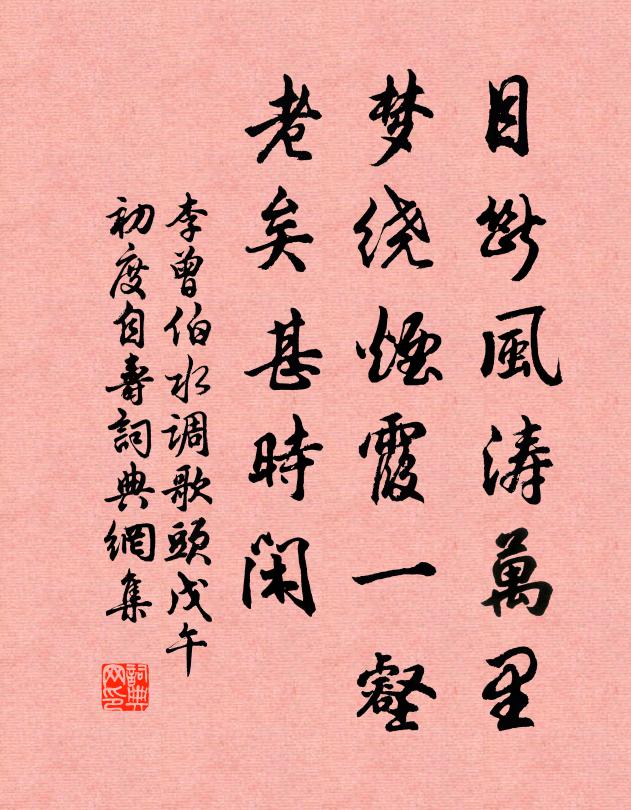 目斷風涛萬里
梦绕煙霞一壑
老矣甚時閑
李曾伯水调歌頭戊午
初度自壽詞典網集
詞典网印